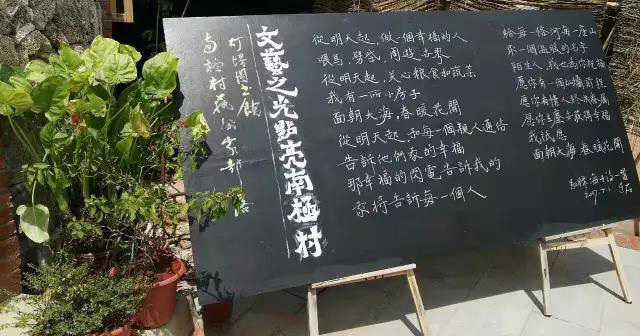 文藝之光點亮南極村
灯塔圖書館
從明天起，做一個幸福的人
喂馬，劈柴，周遊世界
從明天起，关心粮食和蔬菜
我有一所小房子
面朝大海，春暖花開
從明天起，和每一個親人通信
告訴他們我的幸福
那幸福的閃電告訴我的
我将告訴每一個人
給每一條河每一座山
取一個溫暖的名字
陌生人，我也為你祝福
愿你有一個灿爛前程
愿你有情人終成眷属
愿你在塵世获得幸福
我祗愿
面朝大海，春暖花開
海子诗一首